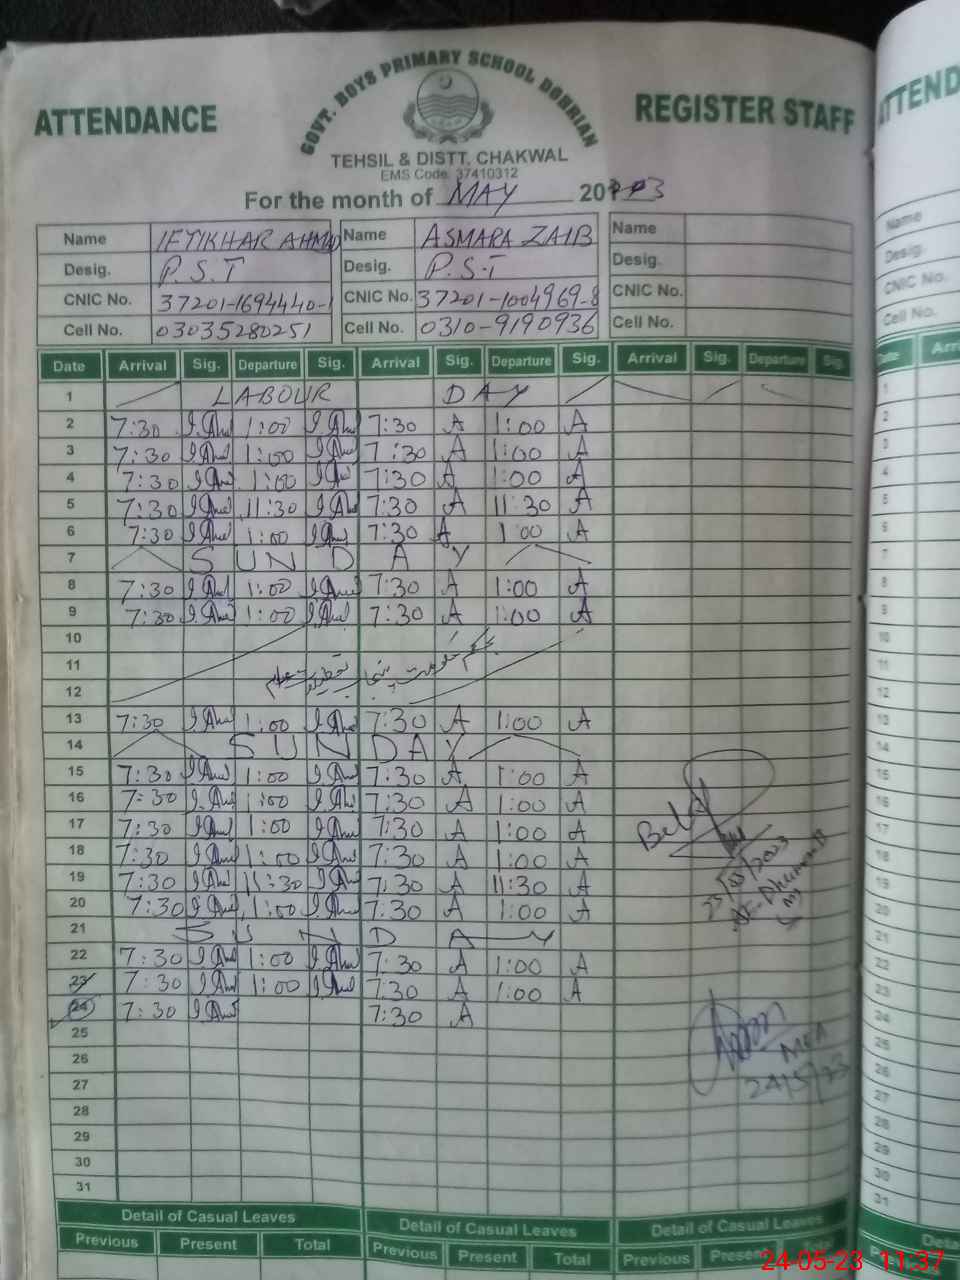 GOVT. BOYS PRIMARY SCHOOL DOHRIAN
ATTENDANCE REGISTER STAFF
TEHSIL & DISTT. CHAKWAL
EMS Code. 37410312
For the month of MAY 2023
Name IFTIKHAR AHMAD Name ASMARA ZAIB Name
Desig. P.S.T Desig. P.S.T Desig.
CNIC No. 37201-1694440-1 CNIC No. 37201-1004969-8 CNIC No.
Cell No. 03035280251 Cell No. 0310-9190936 Cell No.
Date Arrival Sig. Departure Sig. Arrival Sig. Departure Sig. Arrival Sig. Departure Sig.
1 LABOUR DAY
2 7:30 I.Ahmd 1:00 I.Ahmd 7:30 A 1:00 A
3 7:30 I.Ahmd 1:00 I.Ahmd 7:30 A 1:00 A
4 7:30 I.Ahmd 1:00 I.Ahmd 7:30 A 1:00 A
5 7:30 I.Ahmd 11:30 I.Ahmd 7:30 A 11:30 A
6 7:30 I.Ahmd 1:00 I.Ahmd 7:30 A 1:00 A
7 SUNDAY
8 7:30 I.Ahmd 1:00 I.Ahmd 7:30 A 1:00 A
9 7:30 I.Ahmd 1:00 I.Ahmd 7:30 A 1:00 A
10
11 بحکم حکومت پنجاب تعطیلات
12
13 7:30 I.Ahmd 1:00 I.Ahmd 7:30 A 1:00 A
14 SUNDAY
15 7:30 I.Ahmd 1:00 I.Ahmd 7:30 A 1:00 A
16 7:30 I.Ahmd 1:00 I.Ahmd 7:30 A 1:00 A
17 7:30 I.Ahmd 1:00 I.Ahmd 7:30 A 1:00 A
18 7:30 I.Ahmd 1:00 I.Ahmd 7:30 A 1:00 A
19 7:30 I.Ahmd 11:30 I.Ahmd 7:30 A 11:30 A
20 7:30 I.Ahmd 1:00 I.Ahmd 7:30 A 1:00 A
21 SUNDAY
22 7:30 I.Ahmd 1:00 I.Ahmd 7:30 A 1:00 A
23 7:30 I.Ahmd 1:00 I.Ahmd 7:30 A 1:00 A
24 7:30 I.Ahmd 7:30 A
MEA
24/5/23
25
26
27
28
29
30
31
Detail of Casual Leaves Detail of Casual Leaves Detail of Casual Leaves
Previous Present Total Previous Present Total Previous Present Total
24-05-23 11:37